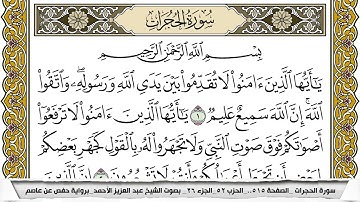 سورة الحجرات
بِسْمِ اللَّهِ الرَّحْمَٰنِ الرَّحِيمِ
يَٰٓأَيُّهَا الَّذِينَ ءَامَنُوا لَا تُقَدِّمُوا بَيْنَ يَدَيِ اللَّهِ وَرَسُولِهِ ۖ وَاتَّقُوا
اللَّهَ ۚ إِنَّ اللَّهَ سَمِيعٌ عَلِيمٌ ١ يَٰٓأَيُّهَا الَّذِينَ ءَامَنُوا لَا تَرْفَعُوٓا
أَصْوَٰتَكُمْ فَوْقَ صَوْتِ النَّبِيِّ وَلَا تَجْهَرُوا لَهُ بِالْقَوْلِ كَجَهْرِ بَعْضِكُمْ
سورة الحجرات _الصفحة ٥١٥.. الحزب ٥٢_الجزء ٢٦_ بصوت الشيخ عبد العزيز الأحمد_برواية حفص عن عاصم